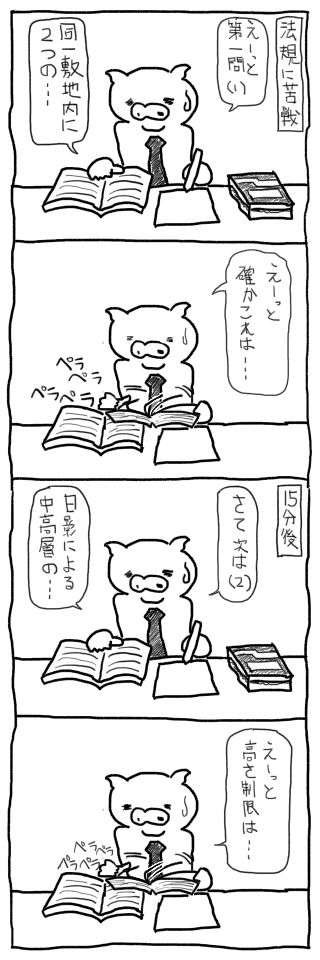 法規に苦戦
えーっと
第一問
(1)
同一敷地内に
2つの…
えーっと
確かこれは…
ペラ
ペラ
ペラ
ペラ
15分後
さて次は
(2)
日影による
中高層の…
えーっと
高さ制限は…
ペラペラ
ペラペラ